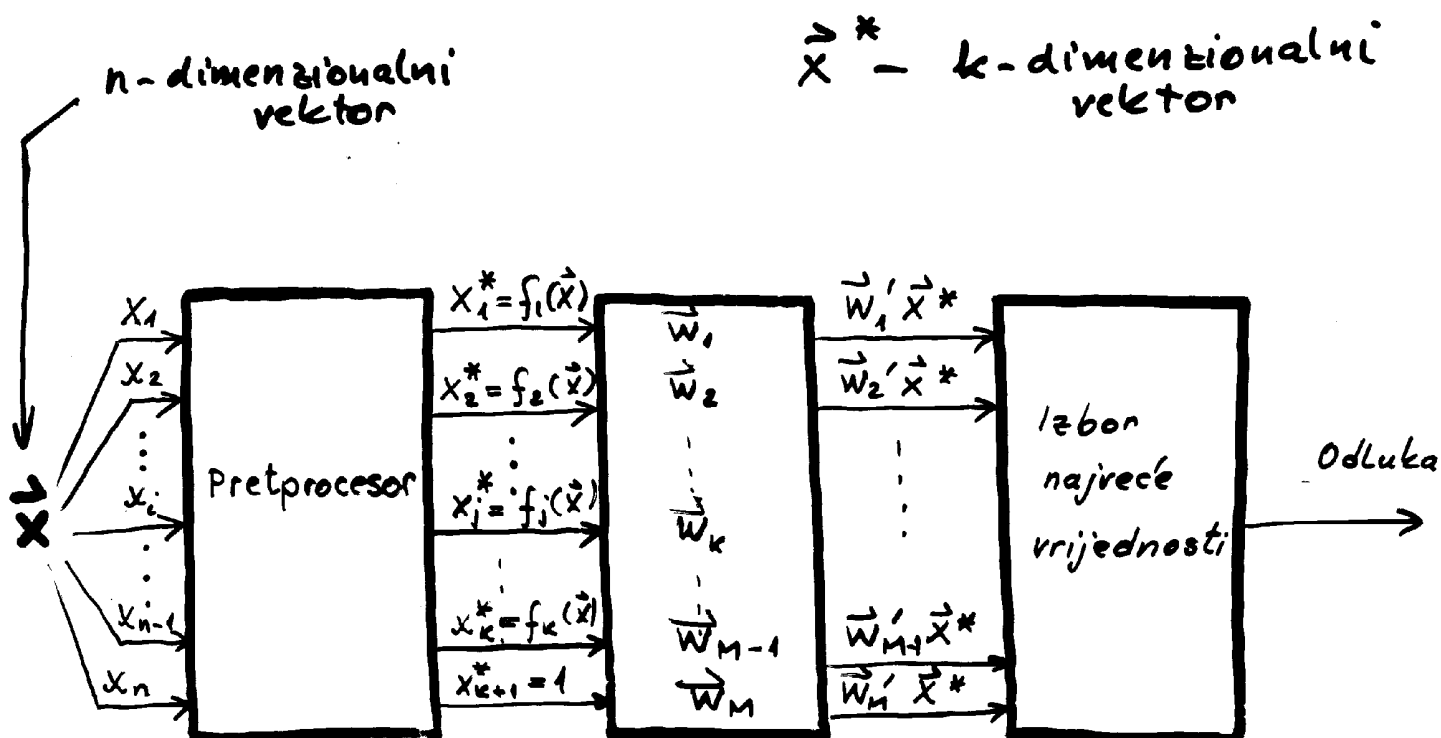 n-dimenzionalni
vektor
x⃗* - k-dimenzionalni
vektor
x⃗
x₁
x₂
xᵢ
xₙ₋₁
xₙ
Pretprocesor
x₁* = f₁(x⃗)
x₂* = f₂(x⃗)
xⱼ* = fⱼ(x⃗)
xₖ* = fₖ(x⃗)
x*ₖ₊₁ = 1
w⃗₁
w⃗₂
w⃗ₖ
w⃗_M-1
w⃗_M
w⃗₁' x⃗*
w⃗₂' x⃗*
w⃗'_M-1 x⃗*
w⃗_M' x⃗*
Izbor
najveće
vrijednosti
Odluka